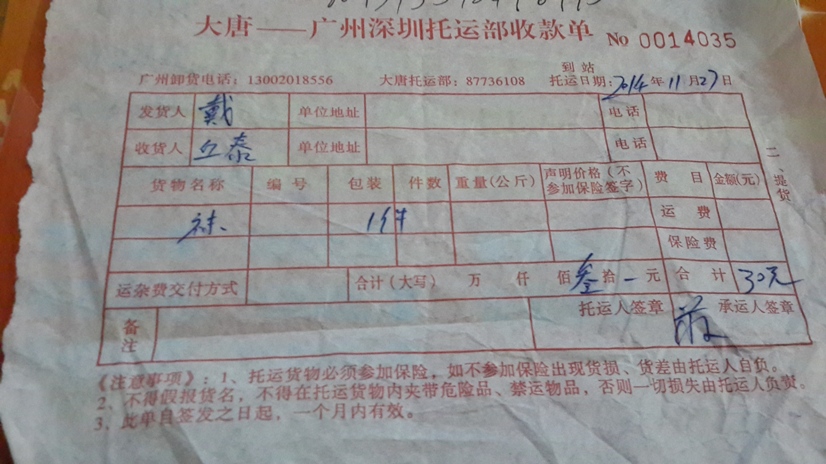 大唐——广州深圳托运部收款单 No 0014035
到站
广州卸货电话：13002018556 大唐托运部：87736108 托运日期：2014年11月27日
发货人 戴 单位地址 电话
收货人 丘泰 单位地址 电话
货物名称 编号 包装 件数 重量(公斤) 声明价格(不参加保险签字) 费目 金额(元)
袜 1件 运费
保险费
运杂费交付方式 合计(大写) 万 仟 佰 叁拾 一 元 合计 30元
备注 托运人签章 承运人签章
二、提货
《注意事项》：1、托运货物必须参加保险，如不参加保险出现货损、货差由托运人自负。
2、不得假报货名，不得在托运货物内夹带危险品、禁运物品，否则一切损失由托运人负责。
3、此单自签发之日起，一个月内有效。